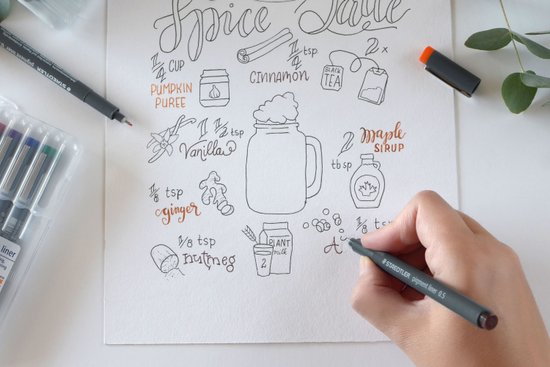 Spice Latte
1/4 CUP
PUMPKIN
PUREE
CINNAMON
1/4 tsp
BLACK
TEA
2 x
1 1/2 tsp
Vanilla
2
tbsp
Maple
SIRUP
1/8 tsp
ginger
1/8 tsp
nutmeg
PLANT
MILK
2
1/8 tsp
A
STAEDTLER pigment liner 0.5
STAEDTLER
liner